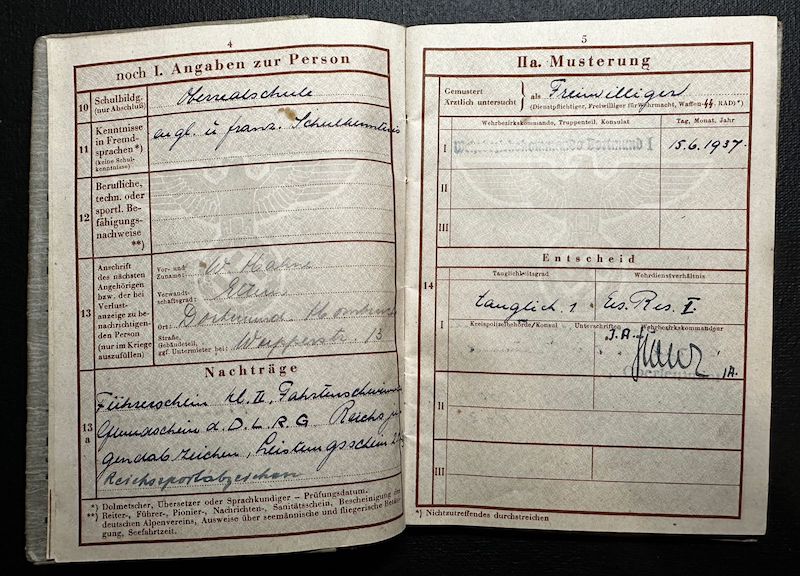 4
noch I. Angaben zur Person
10 Schulbildg. (nur Abschluß)
Oberrealschule
11 Kenntnisse in Fremdsprachen*) (keine Schulkenntnisse)
engl. u. franz. Schulkenntnis
12 Berufliche, techn. oder sportl. Befähigungsnachweise **)
13 Anschrift des nächsten Angehörigen bzw. der bei Verlustanzeige zu benachrichtigenden Person (nur im Kriege auszufüllen)
Vor- und Zuname: W. Hahne
Verwandtschaftsgrad: Eltern
Ort: Dortmund Hombruch
Straße, Gebäudeteil, ggf. Untermieter bei: Wupperstr. 13
Nachträge
13a
Führerschein kl. II, Fahrtenschwimm
Grundschein d. D.L.R.G Reichsju
gendabzeichen, Leistungsschein
Reichssportabzeichen
*) Dolmetscher, Übersetzer oder Sprachkundiger – Prüfungsdatum.
**) Reiter-, Führer-, Pionier-, Nachrichten-, Sanitätsschein, Bescheinigung
deutschen Alpenvereins, Ausweise über seemännische und fliegerische
gung, Seefahrtzeit.
5
IIa. Musterung
Gemustert
Ärztlich untersucht } als Freiwilliger
(Dienstpflichtiger, Freiwilliger für Wehrmacht, Waffen-SS, RAD)*)
Wehrbezirkskommando, Truppenteil, Konsulat
Tag, Monat, Jahr
I Wehrbezirkskommando Dortmund I 15.6.1937.
II
III
Entscheid
14
Tauglichkeitsgrad
Wehrdienstverhältnis
I tauglich 1 Ers. Res. I.
Kreispolizeibehörde/Konsul Unterschriften Wehrbezirkskommandeur
J.A.
II
III
*) Nichtzutreffendes durchstreichen